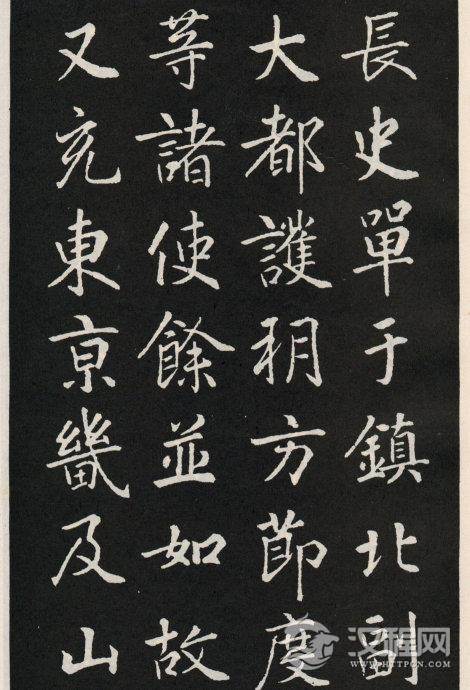 長史單于鎮北副
大都護朔方節度
等諸使餘並如故
又充東京畿及山
汉程网
HTTPCN.COM